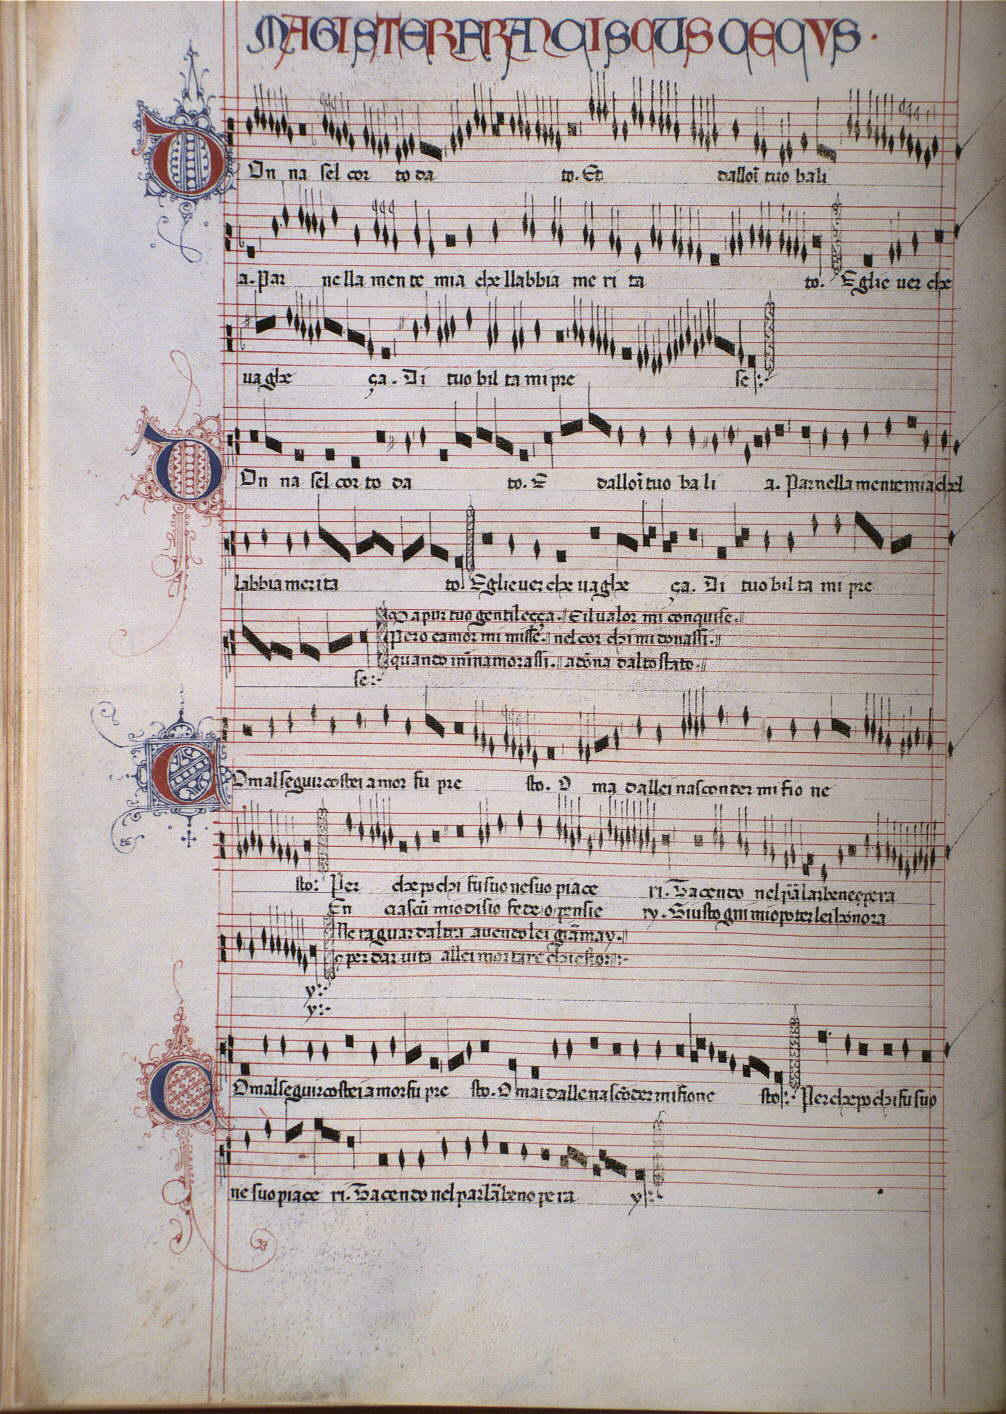 MAGISTER FRANCISCUS CECVS.
DOn na sel cor to da to. Et dallor tuo bali
a. Par nella men te mia che llabbia me ri ta to. Eglie uer che
uaghe ça. Di tuo bil ta mi pre se
DOn na sel cor to da to. E dallor tuo ba li a. Parnella mentemia chel
labbia merita to Eglieuer che uaghe ça. Di tuo bil ta mi pre
Da pur tuo gentileçça. E il ualor mi conquise.
Pero camor mi misse. nel cor chi mi donassi.
quando inamorassi. a dona dalto stato
se
COmalseguir costei a mor fu pre sto. O ma dallei nasconder mi fio ne
sto: Per che po chi fu suo ne suo piace ri. Facendo nel parlar bene opera
En ciascun mio disio fede o pensie ry. Giusto gni mio poter lei honora
Ne raguardaltra auendo lei giamay.
per dar uita allei mortare chiesto
y:
y:
COmalseguir costei a morfu pre sto. O mai dalle na sconder mi fione sto: Per che po chi fu suo
ne suo piace ri. Facendo nel parlar beno pe ra y